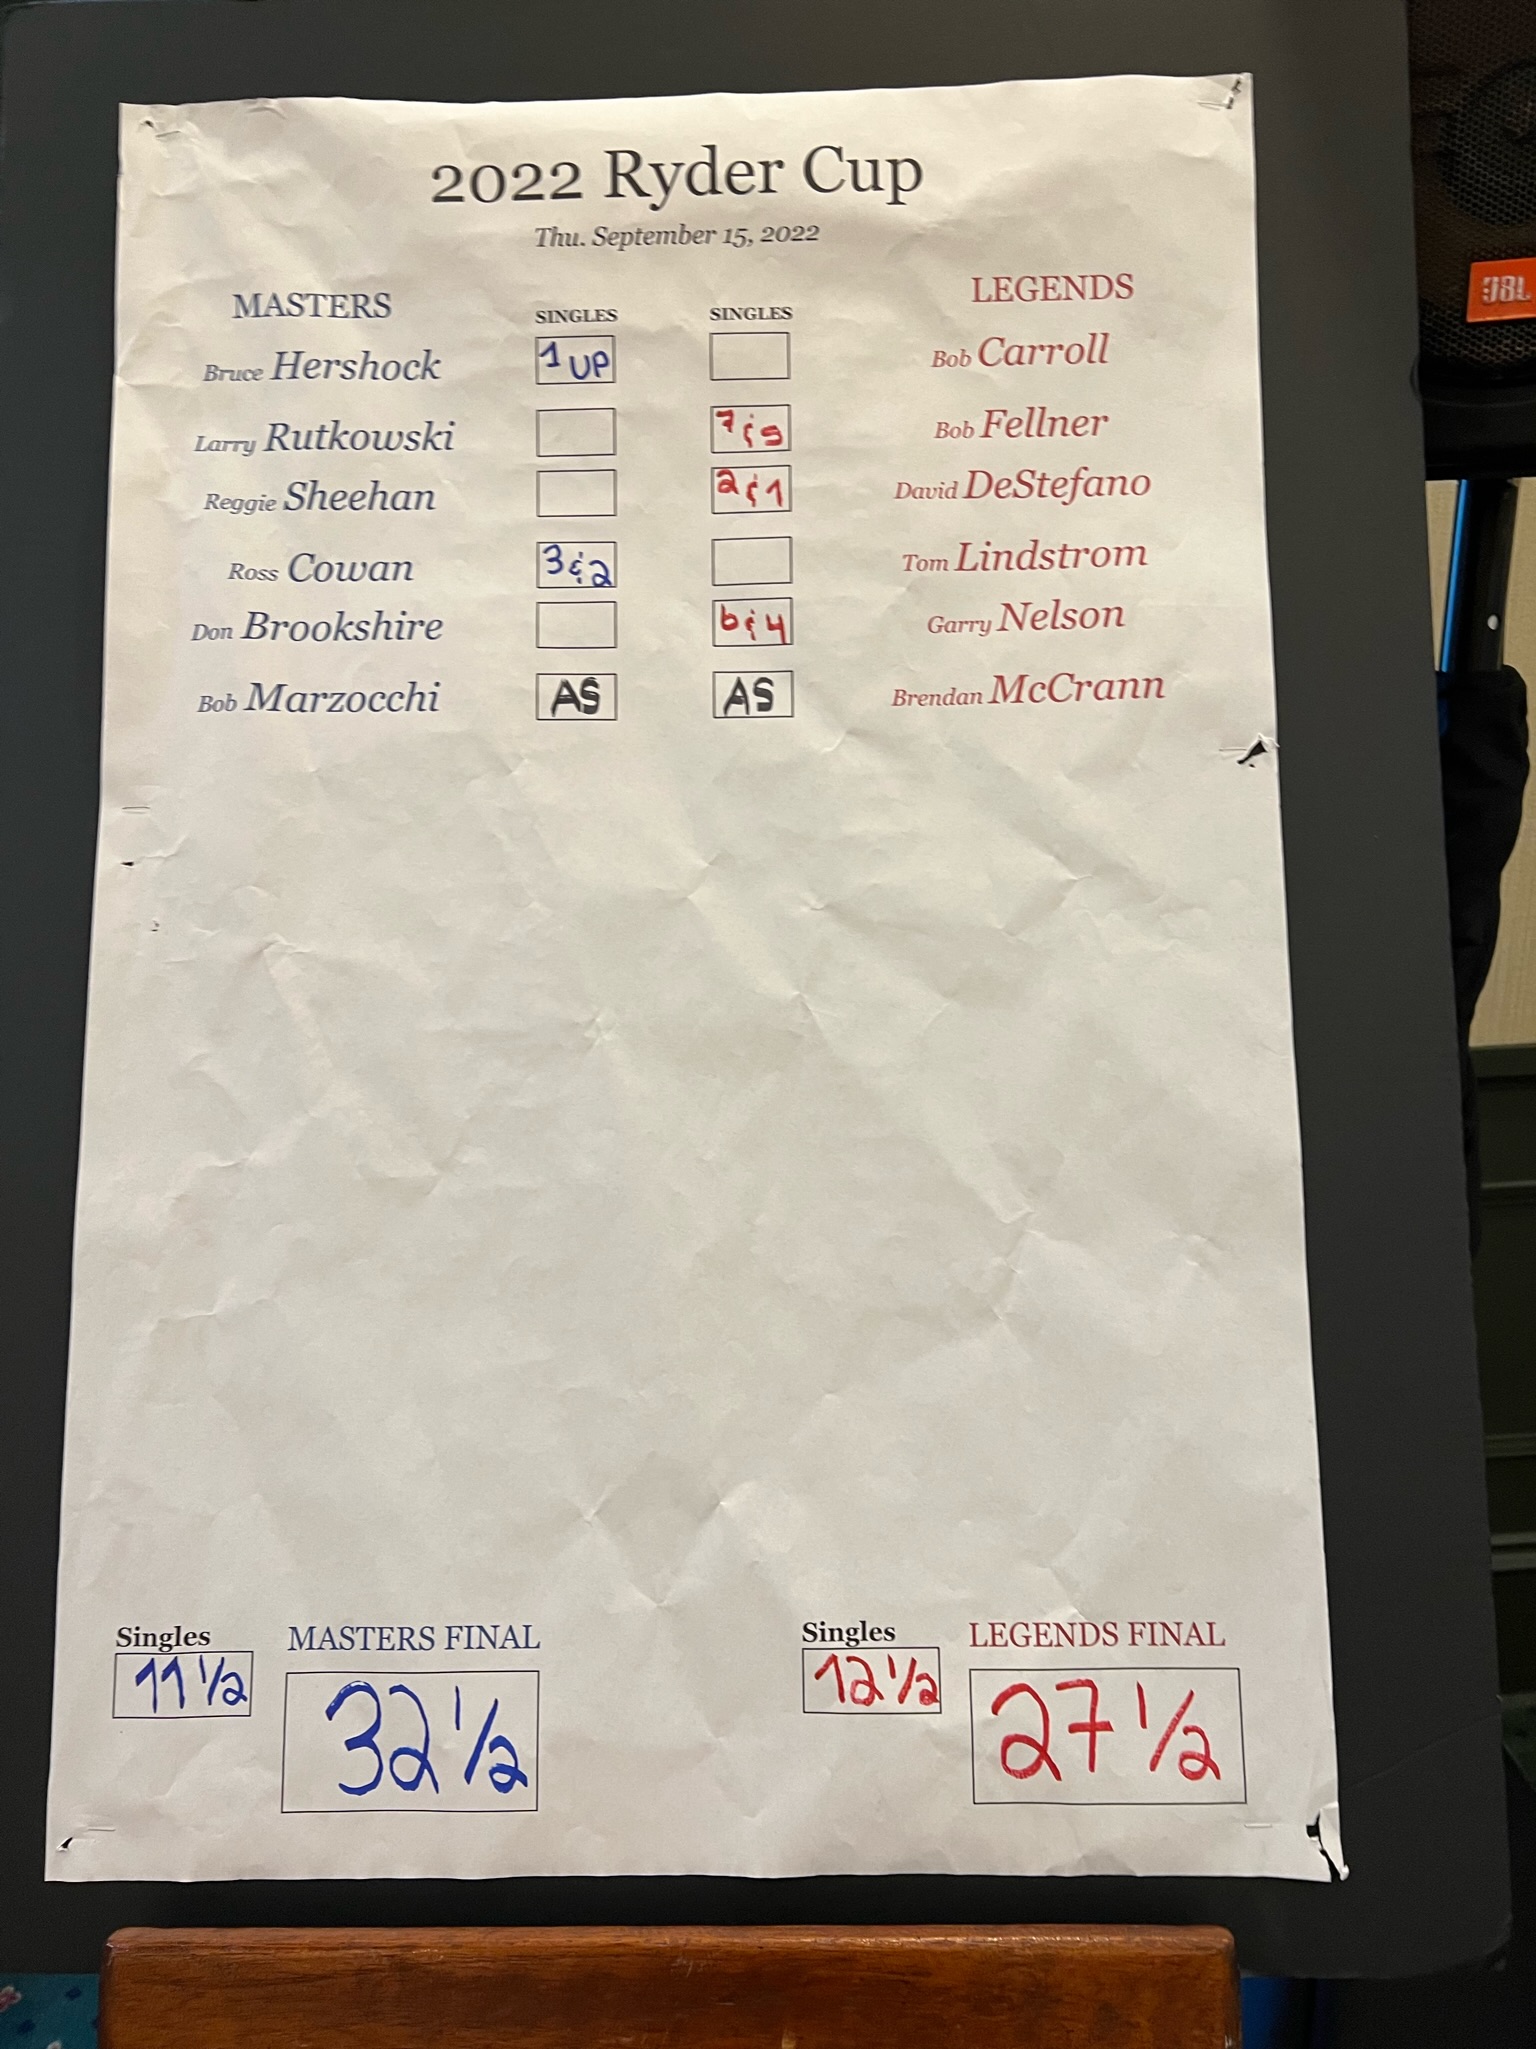 2022 Ryder Cup
Thu. September 15, 2022
MASTERS SINGLES SINGLES LEGENDS
Bruce Hershock 1 UP Bob Carroll
Larry Rutkowski 7 & 5 Bob Fellner
Reggie Sheehan 2 & 1 David DeStefano
Ross Cowan 3 & 2 Tom Lindstrom
Don Brookshire 6 & 4 Garry Nelson
Bob Marzocchi AS AS Brendan McCrann
Singles MASTERS FINAL Singles LEGENDS FINAL
11 1/2 32 1/2 12 1/2 27 1/2
JBL